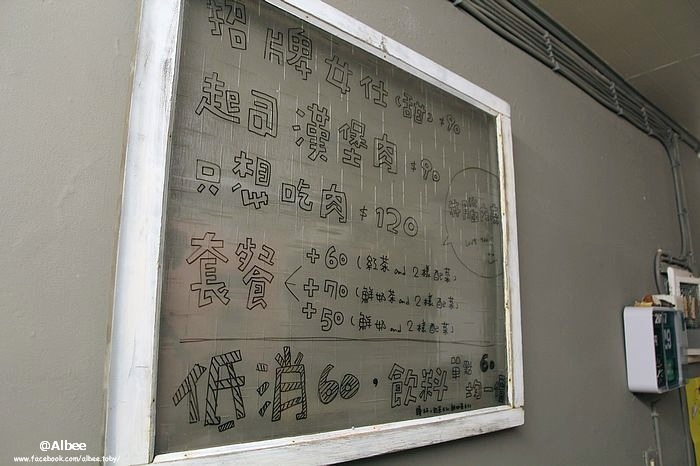 招牌女仕(甜) $90
起司漢堡肉 $90
只想吃肉 $120
套餐
+60 (紅茶 and 2樣配菜)
+70 (鮮奶茶 and 2樣配菜)
+50 (鮮奶 and 2樣配菜)
低消60，飲料單點60
@Albee
www.facebook.com/albee.toby/